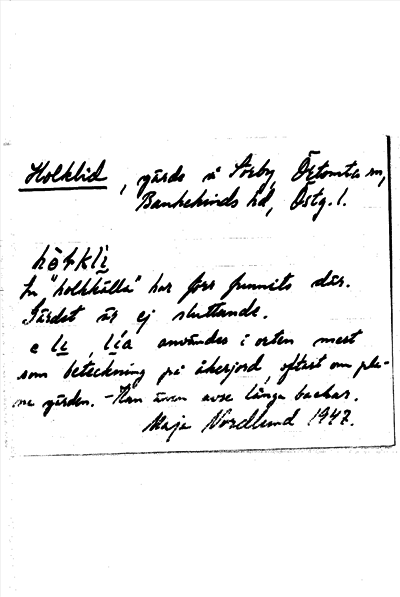 Holklid, gärde å Torby, Östomta sn,
Bankekinds hd, Östg. l.
hòƚklì
En "holkkälla" har förr funnits där.
Gärdet är ej sluttande.
e lì, lía användes i orten mest
som beteckning på åkerjord, oftast om pla-
na gärden. - Kan även avse långa backar.
Maja Nordlund 1947.